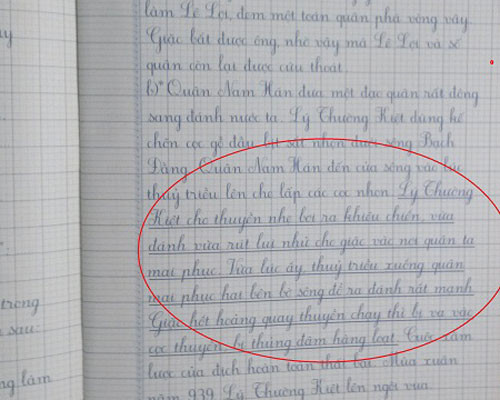 ay
làm Lê Lợi, đem một toán quân phá vòng vây
Giặc bắt được ông, nhờ vậy mà Lê Lợi và số
quân còn lại được cứu thoát.
b)* Quân Nam Hán đưa một đạo quân rất đông
sang đánh nước ta. Lý Thường Kiệt dùng kế
chôn cọc gỗ đầu bịt sắt nhọn dưới sông Bạch
Đằng. Quân Nam Hán đến cửa sông vào lúc
thuỷ triều lên che lấp các cọc nhọn. Lý Thường
Kiệt cho thuyền nhẹ bơi ra khiêu chiến, vừa
đánh vừa rút lui nhử cho giặc vào nơi quân ta
mai phục. Vừa lúc ấy, thuỷ triều xuống quân
mai phục hai bên bờ sông đổ ra đánh rất mạnh
Giặc hốt hoảng quay thuyền chạy thì bị va vào
cọc thuyền bị thủng đắm hàng loạt. Cuộc xâm
trong
lược của địch hoàn toàn thất bại. Mùa xuân
sau:
năm 939 Lý Thường Kiệt lên ngôi vua
ng làm